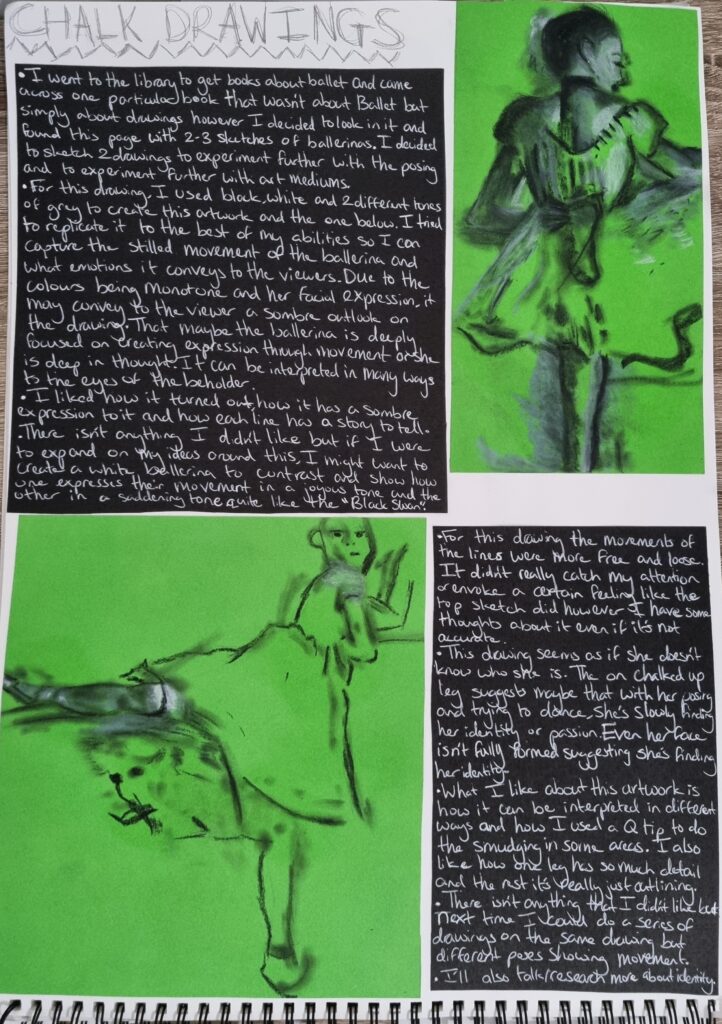 CHALK DRAWINGS
•I went to the library to get books about ballet and came
across one particular book that wasn't about Ballet but
simply about drawings however I decided to look in it and
found this page with 2-3 sketches of ballerinas. I decided
to sketch 2 drawings to experiment further with the posing
and to experiment further with art mediums.
•For this drawing, I used black, white and 2 different tones
of grey to create this artwork and the one below. I tried
to replicate it to the best of my abilities so I can
capture the stilled movement of the ballerina and
what emotions it conveys to the viewers. Due to the
colours being monotone and her facial expression, it
may convey to the viewer a sombre outlook on
the drawing. That maybe the ballerina is deeply
focused on creating expression through movement or she
is deep in thought. It can be interpreted in many ways
to the eyes of the beholder.
•I liked how it turned out, how it has a sombre
expression to it and how each line has a story to tell.
•There isn't anything I didn't like but if I were
to expand on my ideas around this, I might want to
create a white ballerina to contrast and show how
one expresses their movement in a joyous tone and the
other in a saddening tone quite like the "Black Swan".
•For this drawing the movements of
the lines were more free and loose.
It didn't really catch my attention
or envoke a certain feeling like the
top sketch did however I have some
thoughts about it even if it's not
accurate.
•This drawing seems as if she doesn't
know who she is. The on chalked up
leg suggests maybe that with her posing
and trying to dance, she's slowly finding
her identity or passion. Even her face
isn't fully formed suggesting she's finding
her identity.
•What I like about this artwork is
how it can be interpreted in different
ways and how I used a Q tip to do
the smudging in some areas. I also
like how one leg has so much detail
and the rest it's really just outlining.
•There isn't anything that I didn't like but
next time I could do a series of
drawings on the same drawing but
different poses showing movement.
•I'll also talk/research more about identity.